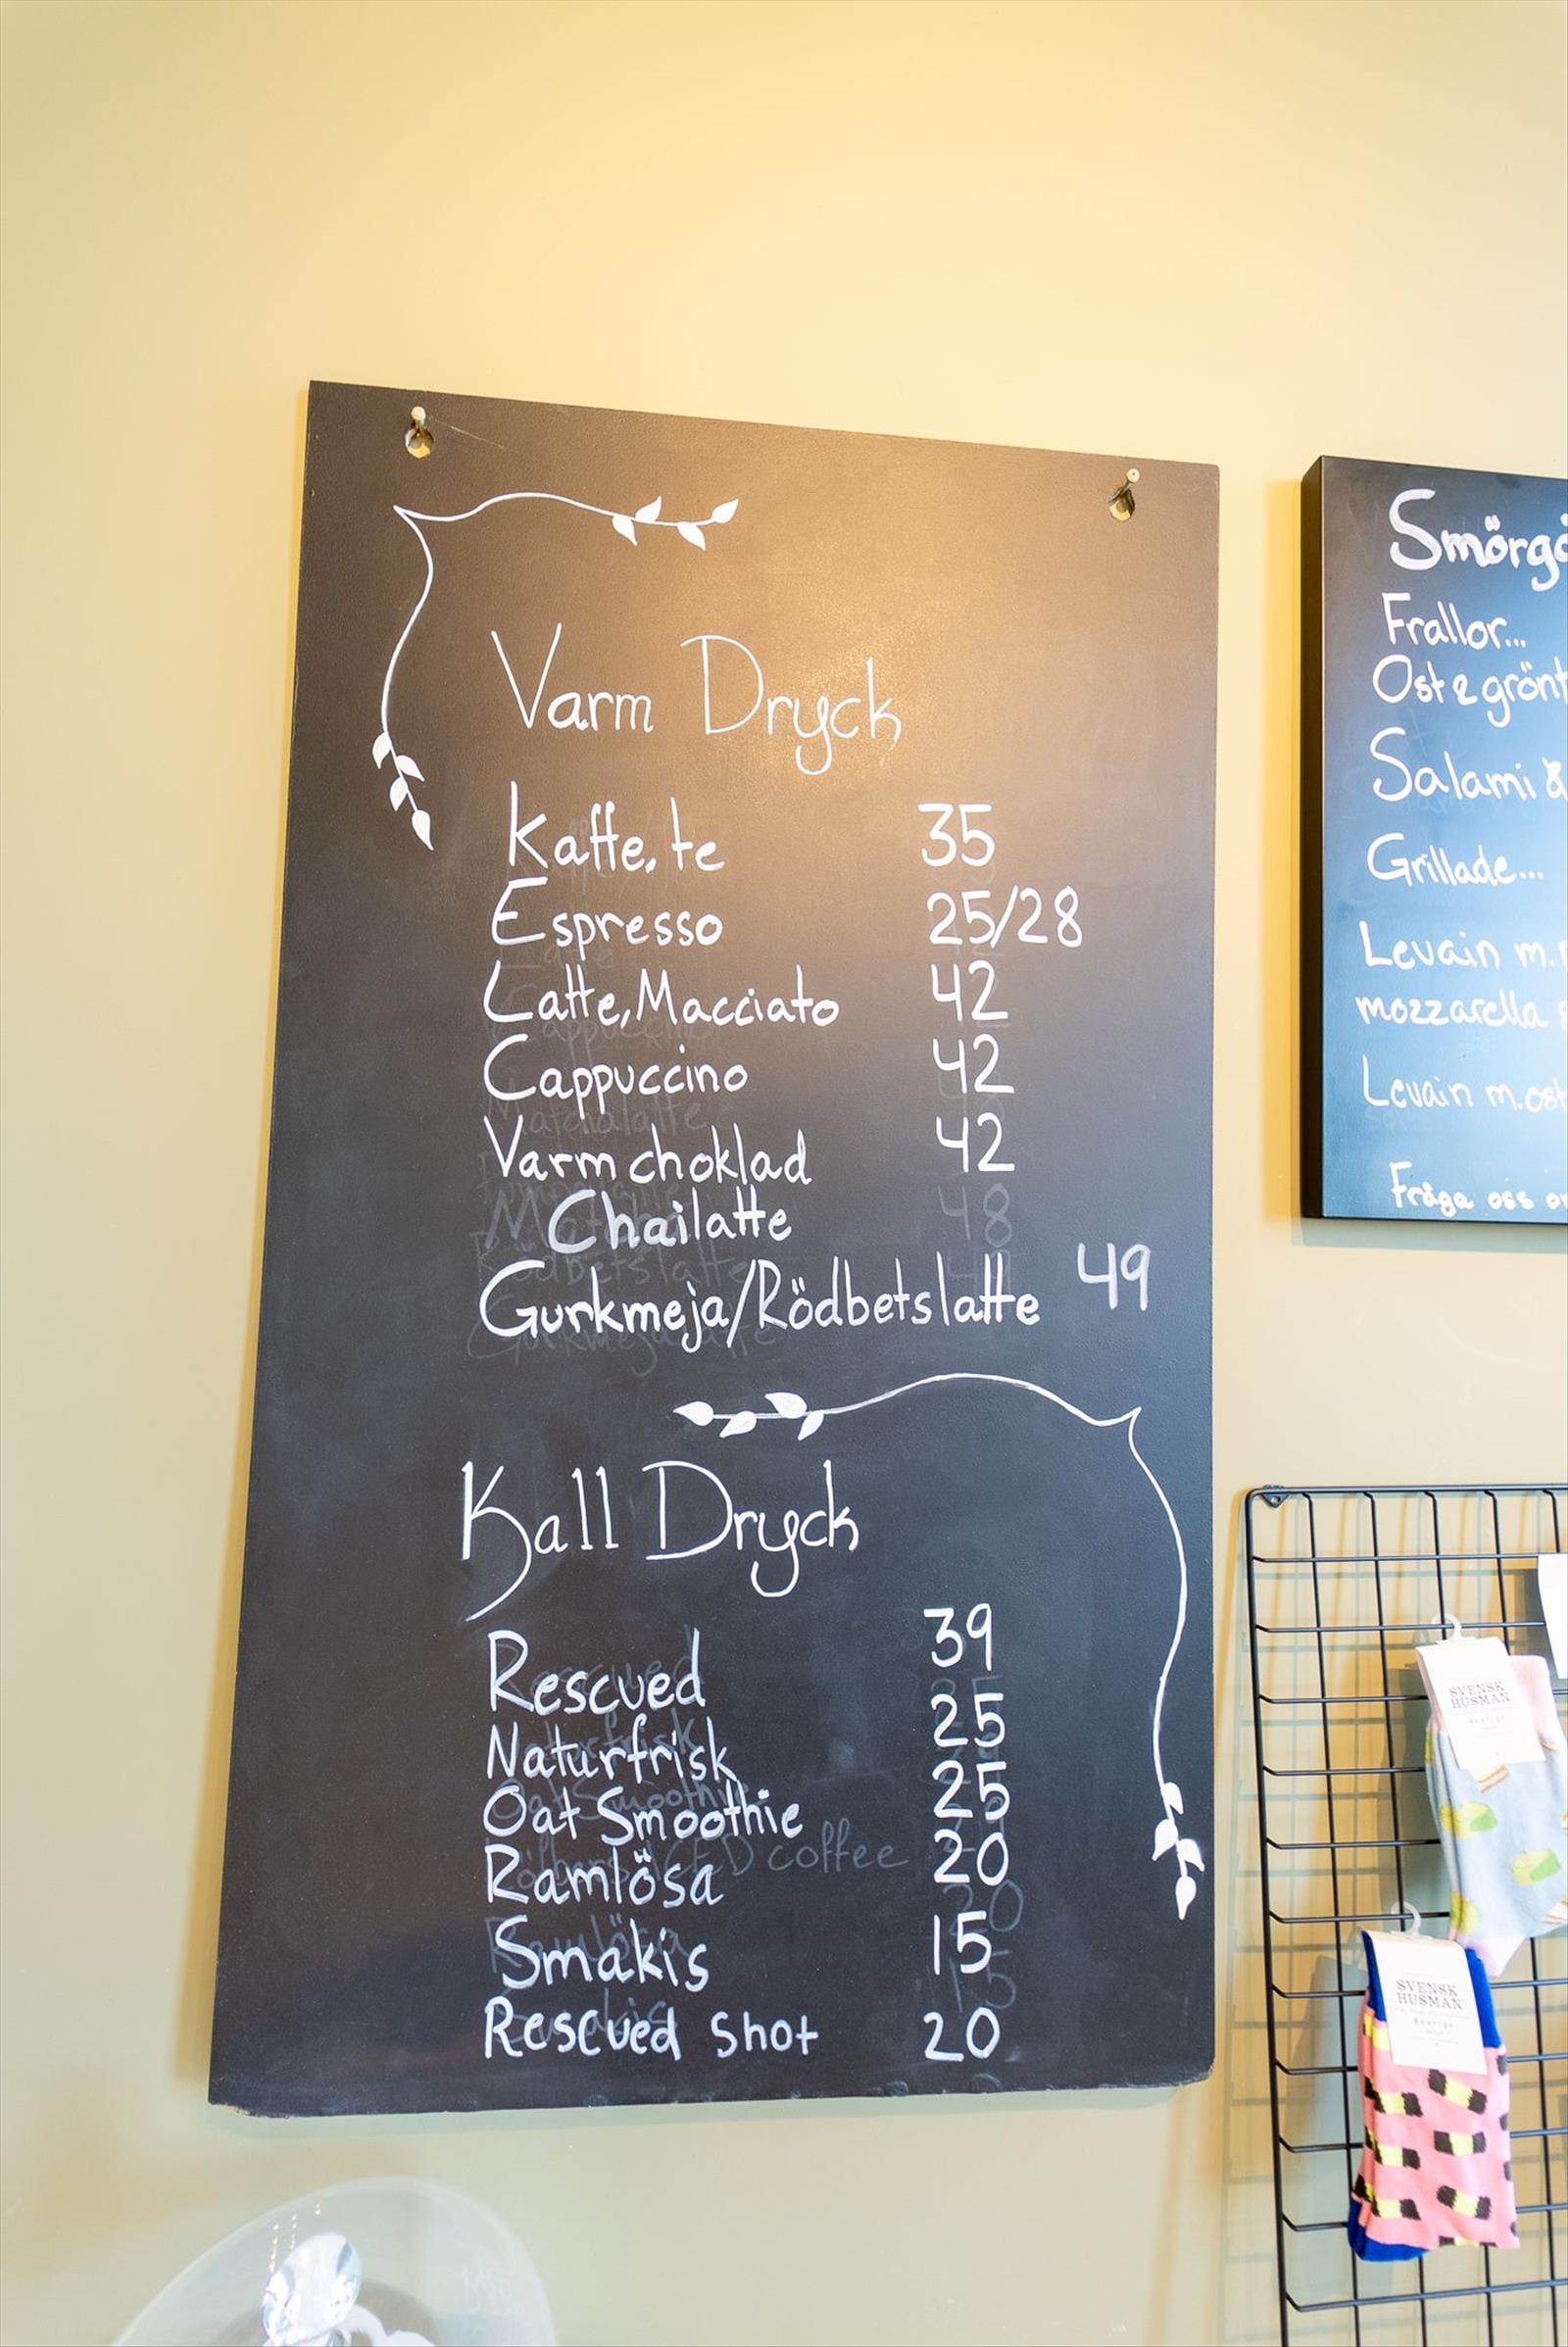 Varm Dryck
Kaffe, te 35
Espresso 25/28
Latte, Macciato 42
Cappuccino 42
Varm choklad 42
Chailatte
Gurkmeja/Rödbetslatte 49
Kall Dryck
Rescued 39
Naturfrisk 25
Oat Smoothie 25
Ramlösa 20
Smakis 15
Rescued Shot 20
Frallor...
Ost & grönt
Salami &
Grillade...
Levain m.
mozzarella
Levain m.ost
Fråga oss
SVENSK
HUSMAN
Sverige
SVENSK
HUSMAN
Sverige